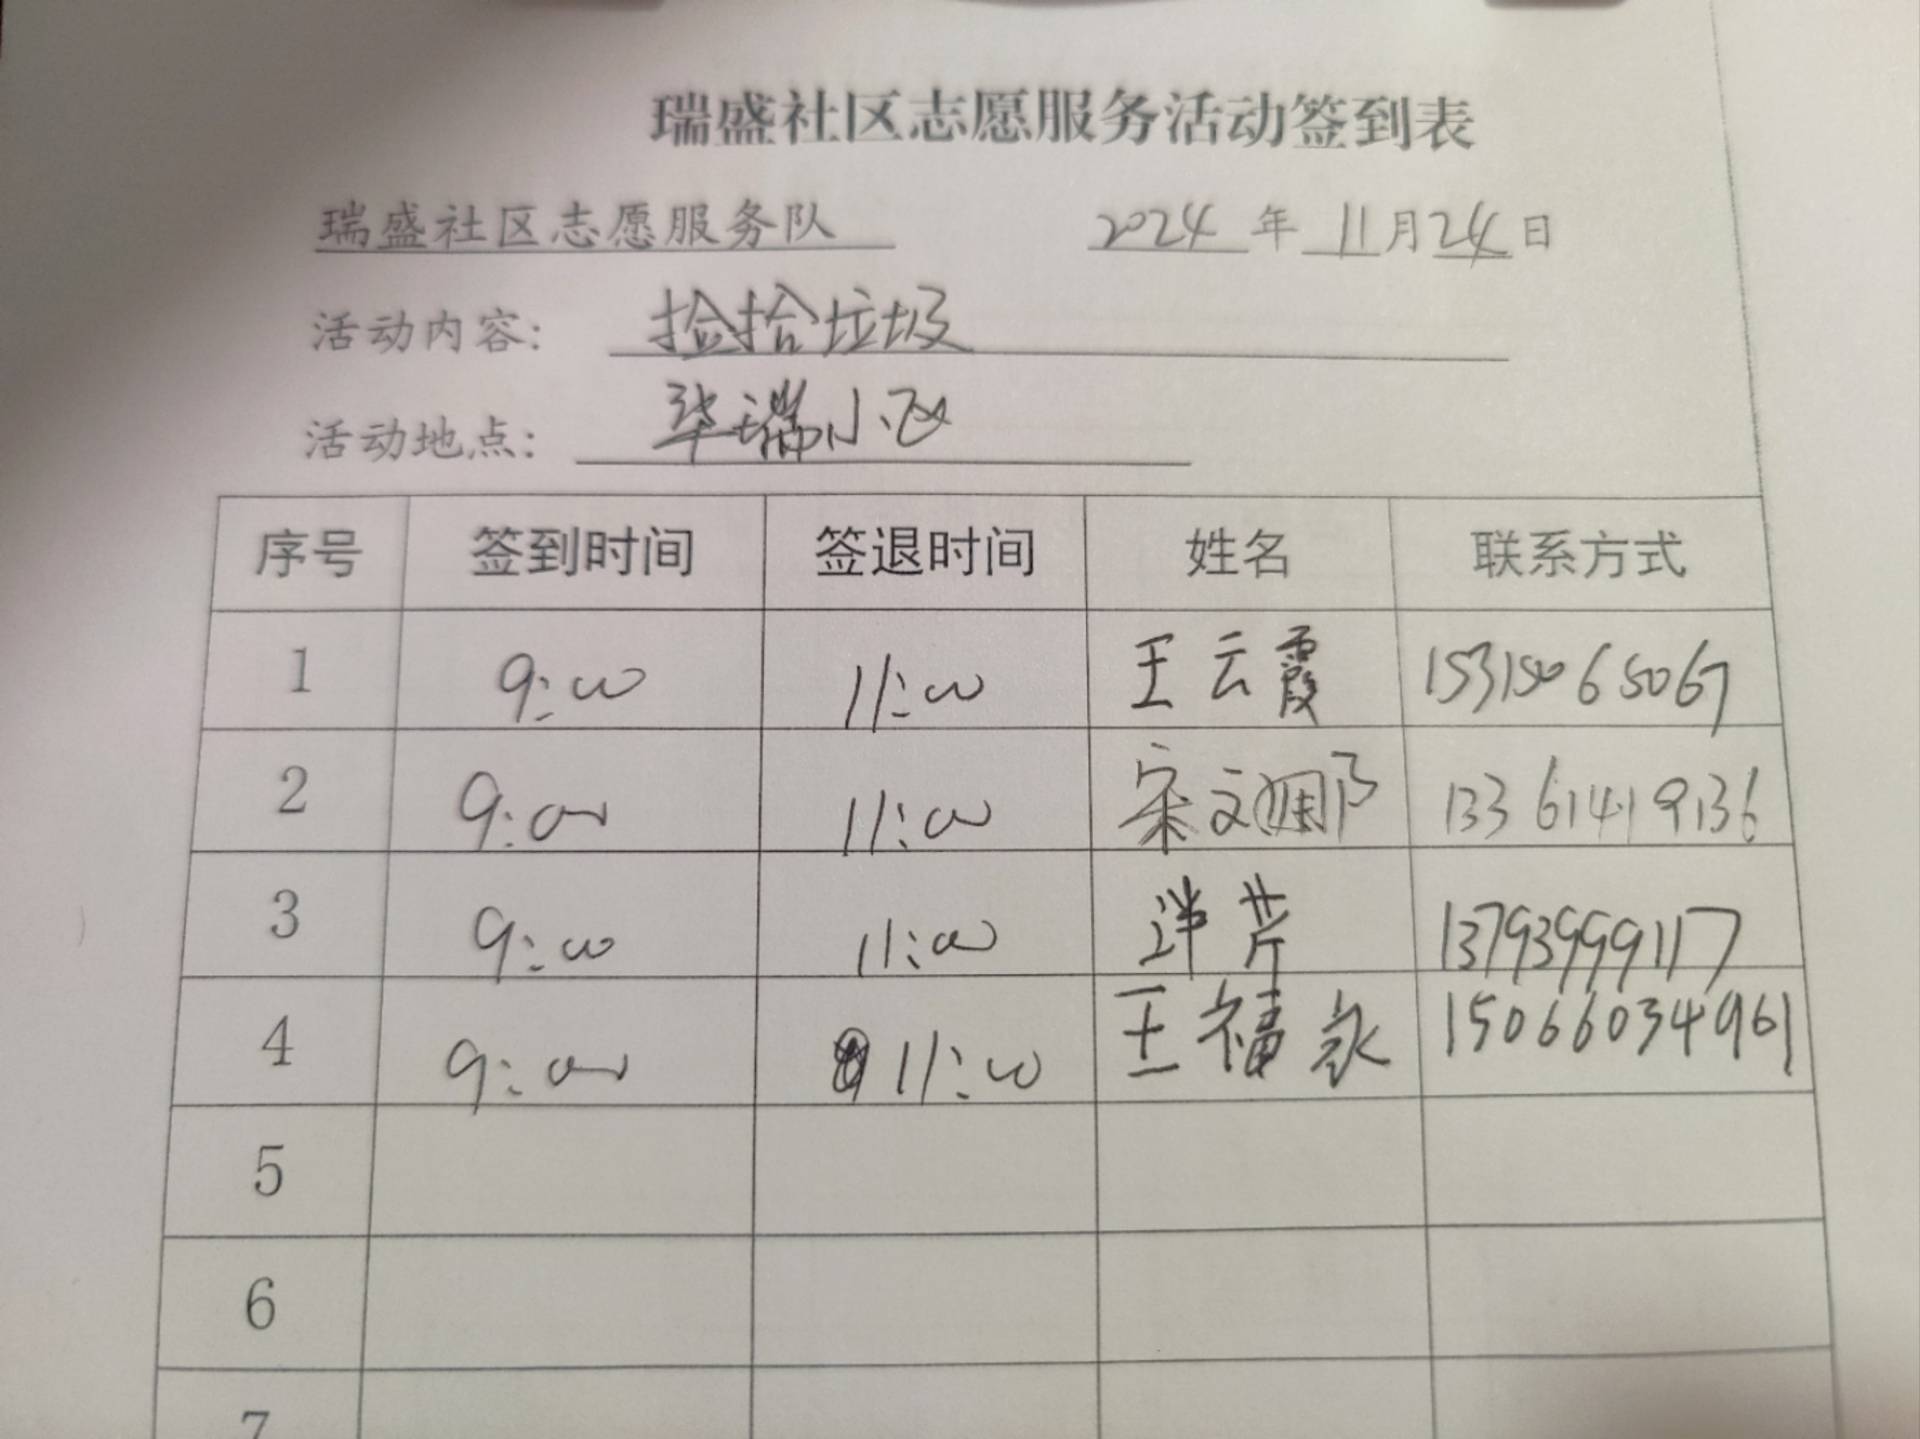 瑞盛社区志愿服务活动签到表
瑞盛社区志愿服务队 2024年11月24日
活动内容: 捡拾垃圾
活动地点: 华瑞小区
序号 签到时间 签退时间 姓名 联系方式
1 9:00 11:00 王云霞 15315065067
2 9:00 11:00 宋文娜 13361419136
3 9:00 11:00 芹 13793999117
4 9:00 11:00 王福永 15066034961
5
6
7